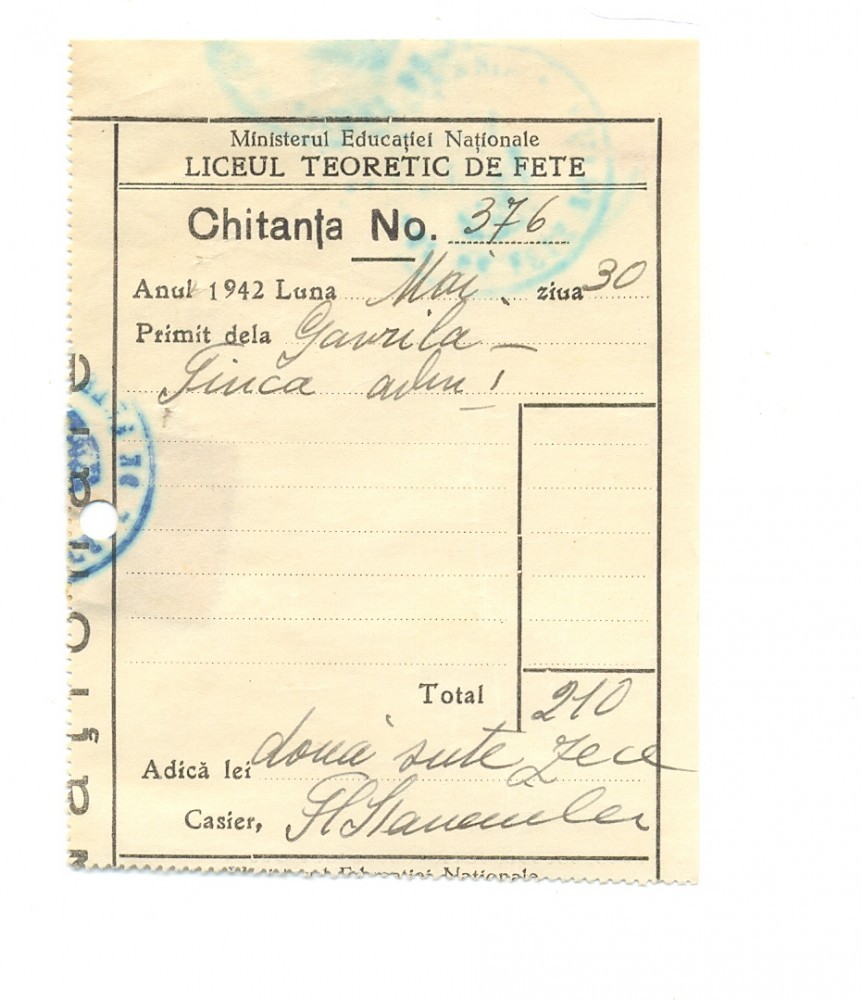 Ministerul Educației Naționale
LICEUL TEORETIC DE FETE
Chitanța No. 376
Anul 1942 Luna Mai ziua 30
Primit dela Gavrila
Tinca adm I
Total 210
Adică lei două sute zece
Casier,